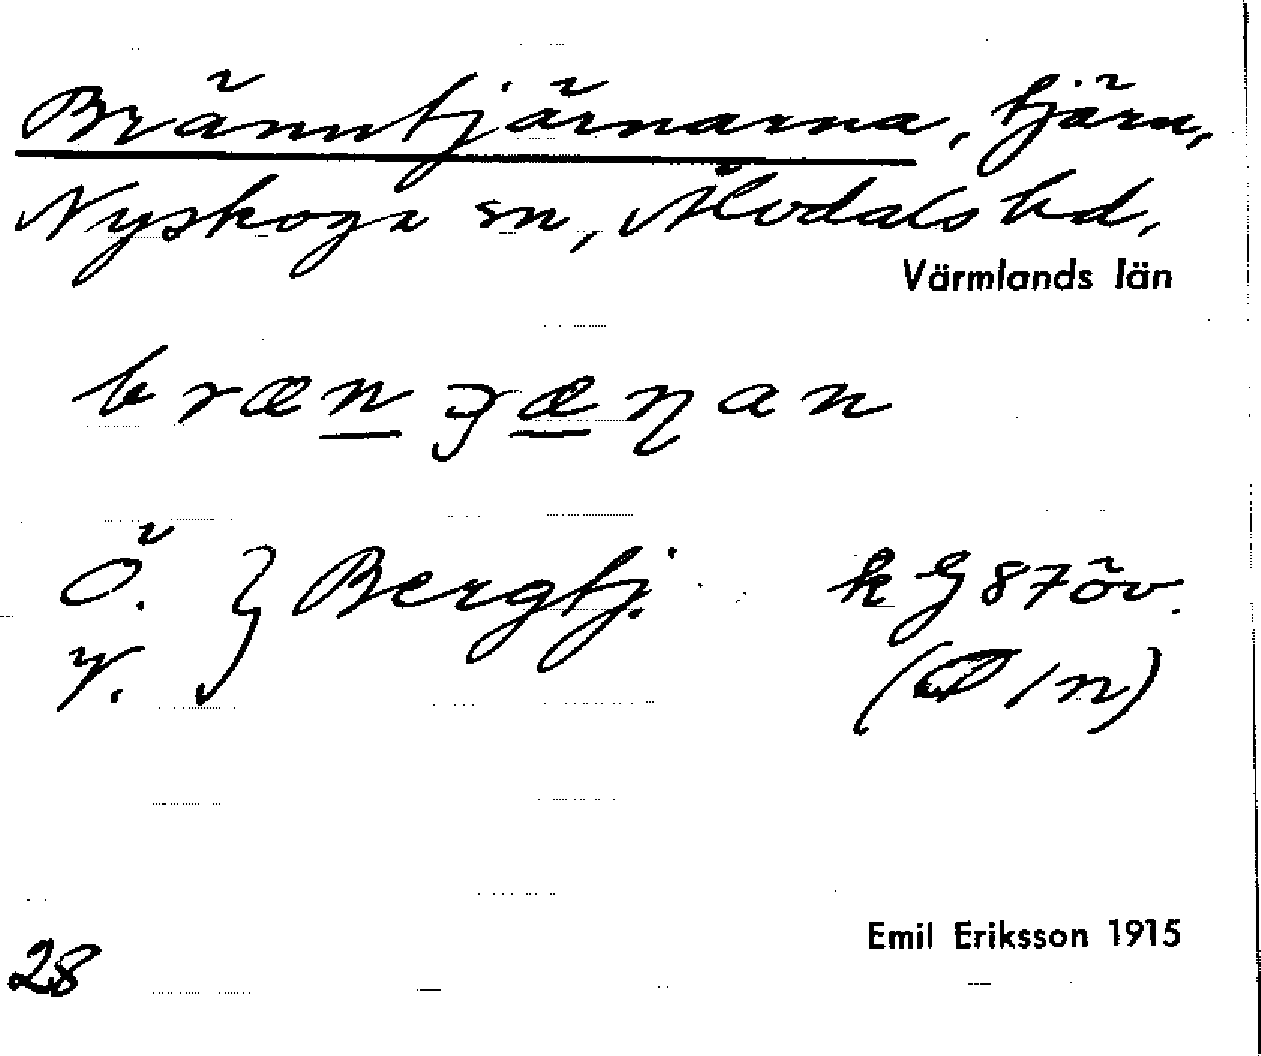 Bränntjärnarna, tjärn,
Nyskoga sn, Älvdals hd,
Värmlands län
brænʒæɳan
Ö. } Bergtj. k G 87 öv.
V. (Ø/n)
28 Emil Eriksson 1915